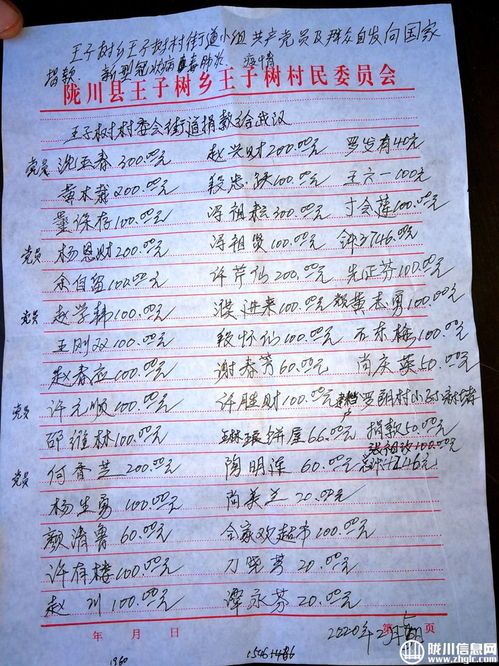 王子树乡王子树村街道小组共产党员及群众自发向国家
捐款 新型冠状病毒肺炎 疫情
陇川县王子树乡王子树村民委员会
王子树村委会街道捐款给武汉
党员 沈玉春300.00元 赵兴财200.00元 罗发有40元
200.00元 段忠 100.00元 王六一100元
董保存100.00元 冯祖 300.00元 寸会莲100.00元
党员 杨恩财200.00元 冯祖贤100.00元 46.00元
余自 100.00元 许芹仙200.00元 先正芬100.00元
党员 赵学 100.00元 濮进来100.00元 黄志勇100.00元
王刚 100.00元 段怀仙100.00元 石东梅100.00元
赵春应100.00元 谢春芳60.00元 尚庆英50.00元
党员 许元顺100.00元 许胜财100.00元 罗朗村
邵维林100.00元 琳琅饼屋66.00元 捐款50.00元
张祖 100.00元
党员 何香兰200.00元 陶明连60.00元 46元
杨生勇100.00元 尚美兰20.00元
颜清鲁60.00元 合家欢超市100.00元
许存楼100.00元 刀晓芳20.00元
赵川100.00元 谭永芬20.00元
年 月 日 第 页
2020年2月
陇川信息网
www.zhglc.com